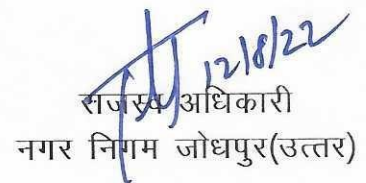 12/8/22
राजस्व अधिकारी
नगर निगम जोधपुर(उत्तर)